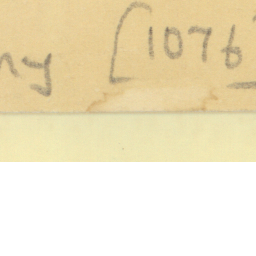 ny [1076